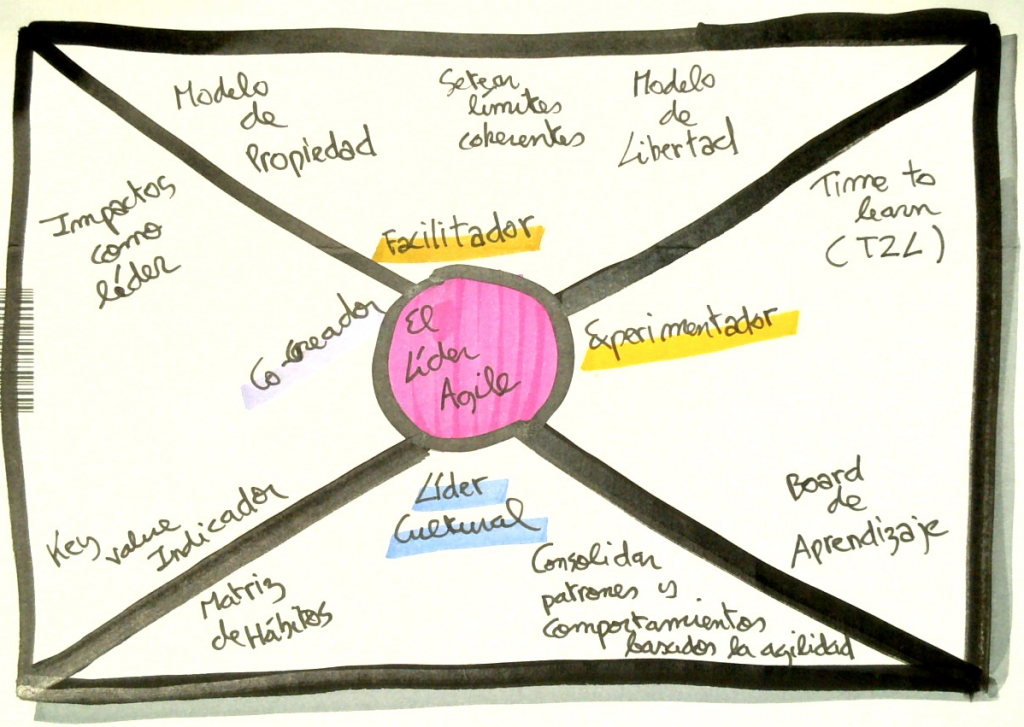 Modelo
de
Propiedad
Setear
límites
coherentes
Modelo
de
Libertad
Impactos
como
líder
Time to
learn
(T2L)
Facilitador
Co-creador
El
Líder
Agile
Experimentador
Key value
Indicador
Líder
Cultural
Board
de
Aprendizaje
Matriz
de Hábitos
Consolidar
patrones y
comportamientos
basados la agilidad